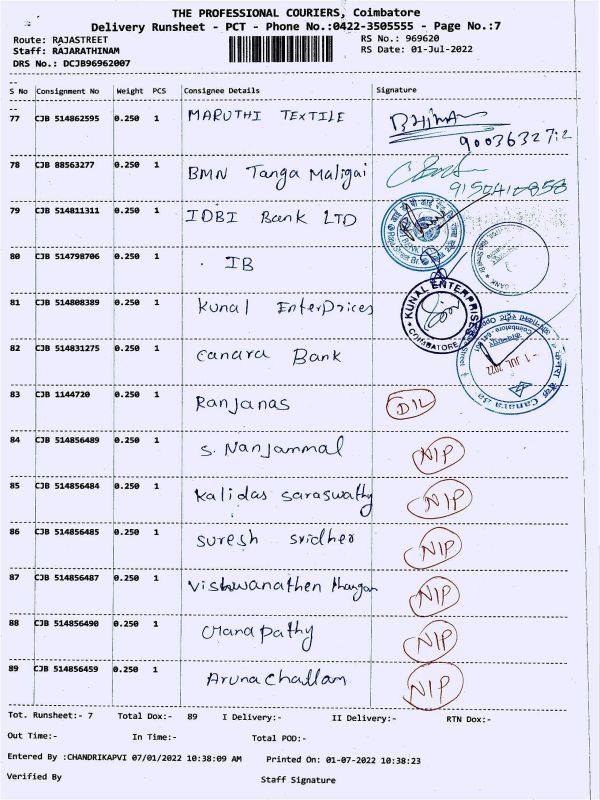 THE PROFESSIONAL COURIERS, Coimbatore
Delivery Runsheet - PCT - Phone No.:0422-3505555 - Page No.:7
Route: RAJASTREET RS No.: 969620
Staff: RAJARATHINAM RS Date: 01-Jul-2022
DRS No.: DCJB96962007
S No Consignment No Weight PCS Consignee Details Signature
77 CJB 514862595 0.250 1 MARUTHI TEXTILE
78 CJB 88563277 0.250 1 BMN Tanga Maligai
79 CJB 514811311 0.250 1 IDBI Bank LTD
80 CJB 514798706 0.250 1 IB
81 CJB 514808389 0.250 1 Kunal Enterprices KUNAL ENTERPRISES COIMBATORE
82 CJB 514831275 0.250 1 Canara Bank -1 JUL 2022
83 CJB 1144720 0.250 1 Ranjanas DIL
84 CJB 514856489 0.250 1 S. Nanjammal NIP
85 CJB 514856484 0.250 1 Kalidas Saraswathy NIP
86 CJB 514856485 0.250 1 Suresh Sridher NIP
87 CJB 514856487 0.250 1 Viswanathen NIP
88 CJB 514856490 0.250 1 NIP
89 CJB 514856459 0.250 1 Arunachallam NIP
Tot. Runsheet:- 7 Total Dox:- 89 I Delivery:- II Delivery:- RTN Dox:-
Out Time:- In Time:- Total POD:-
Entered By :CHANDRIKAPVI 07/01/2022 10:38:09 AM Printed On: 01-07-2022 10:38:23
Verified By Staff Signature